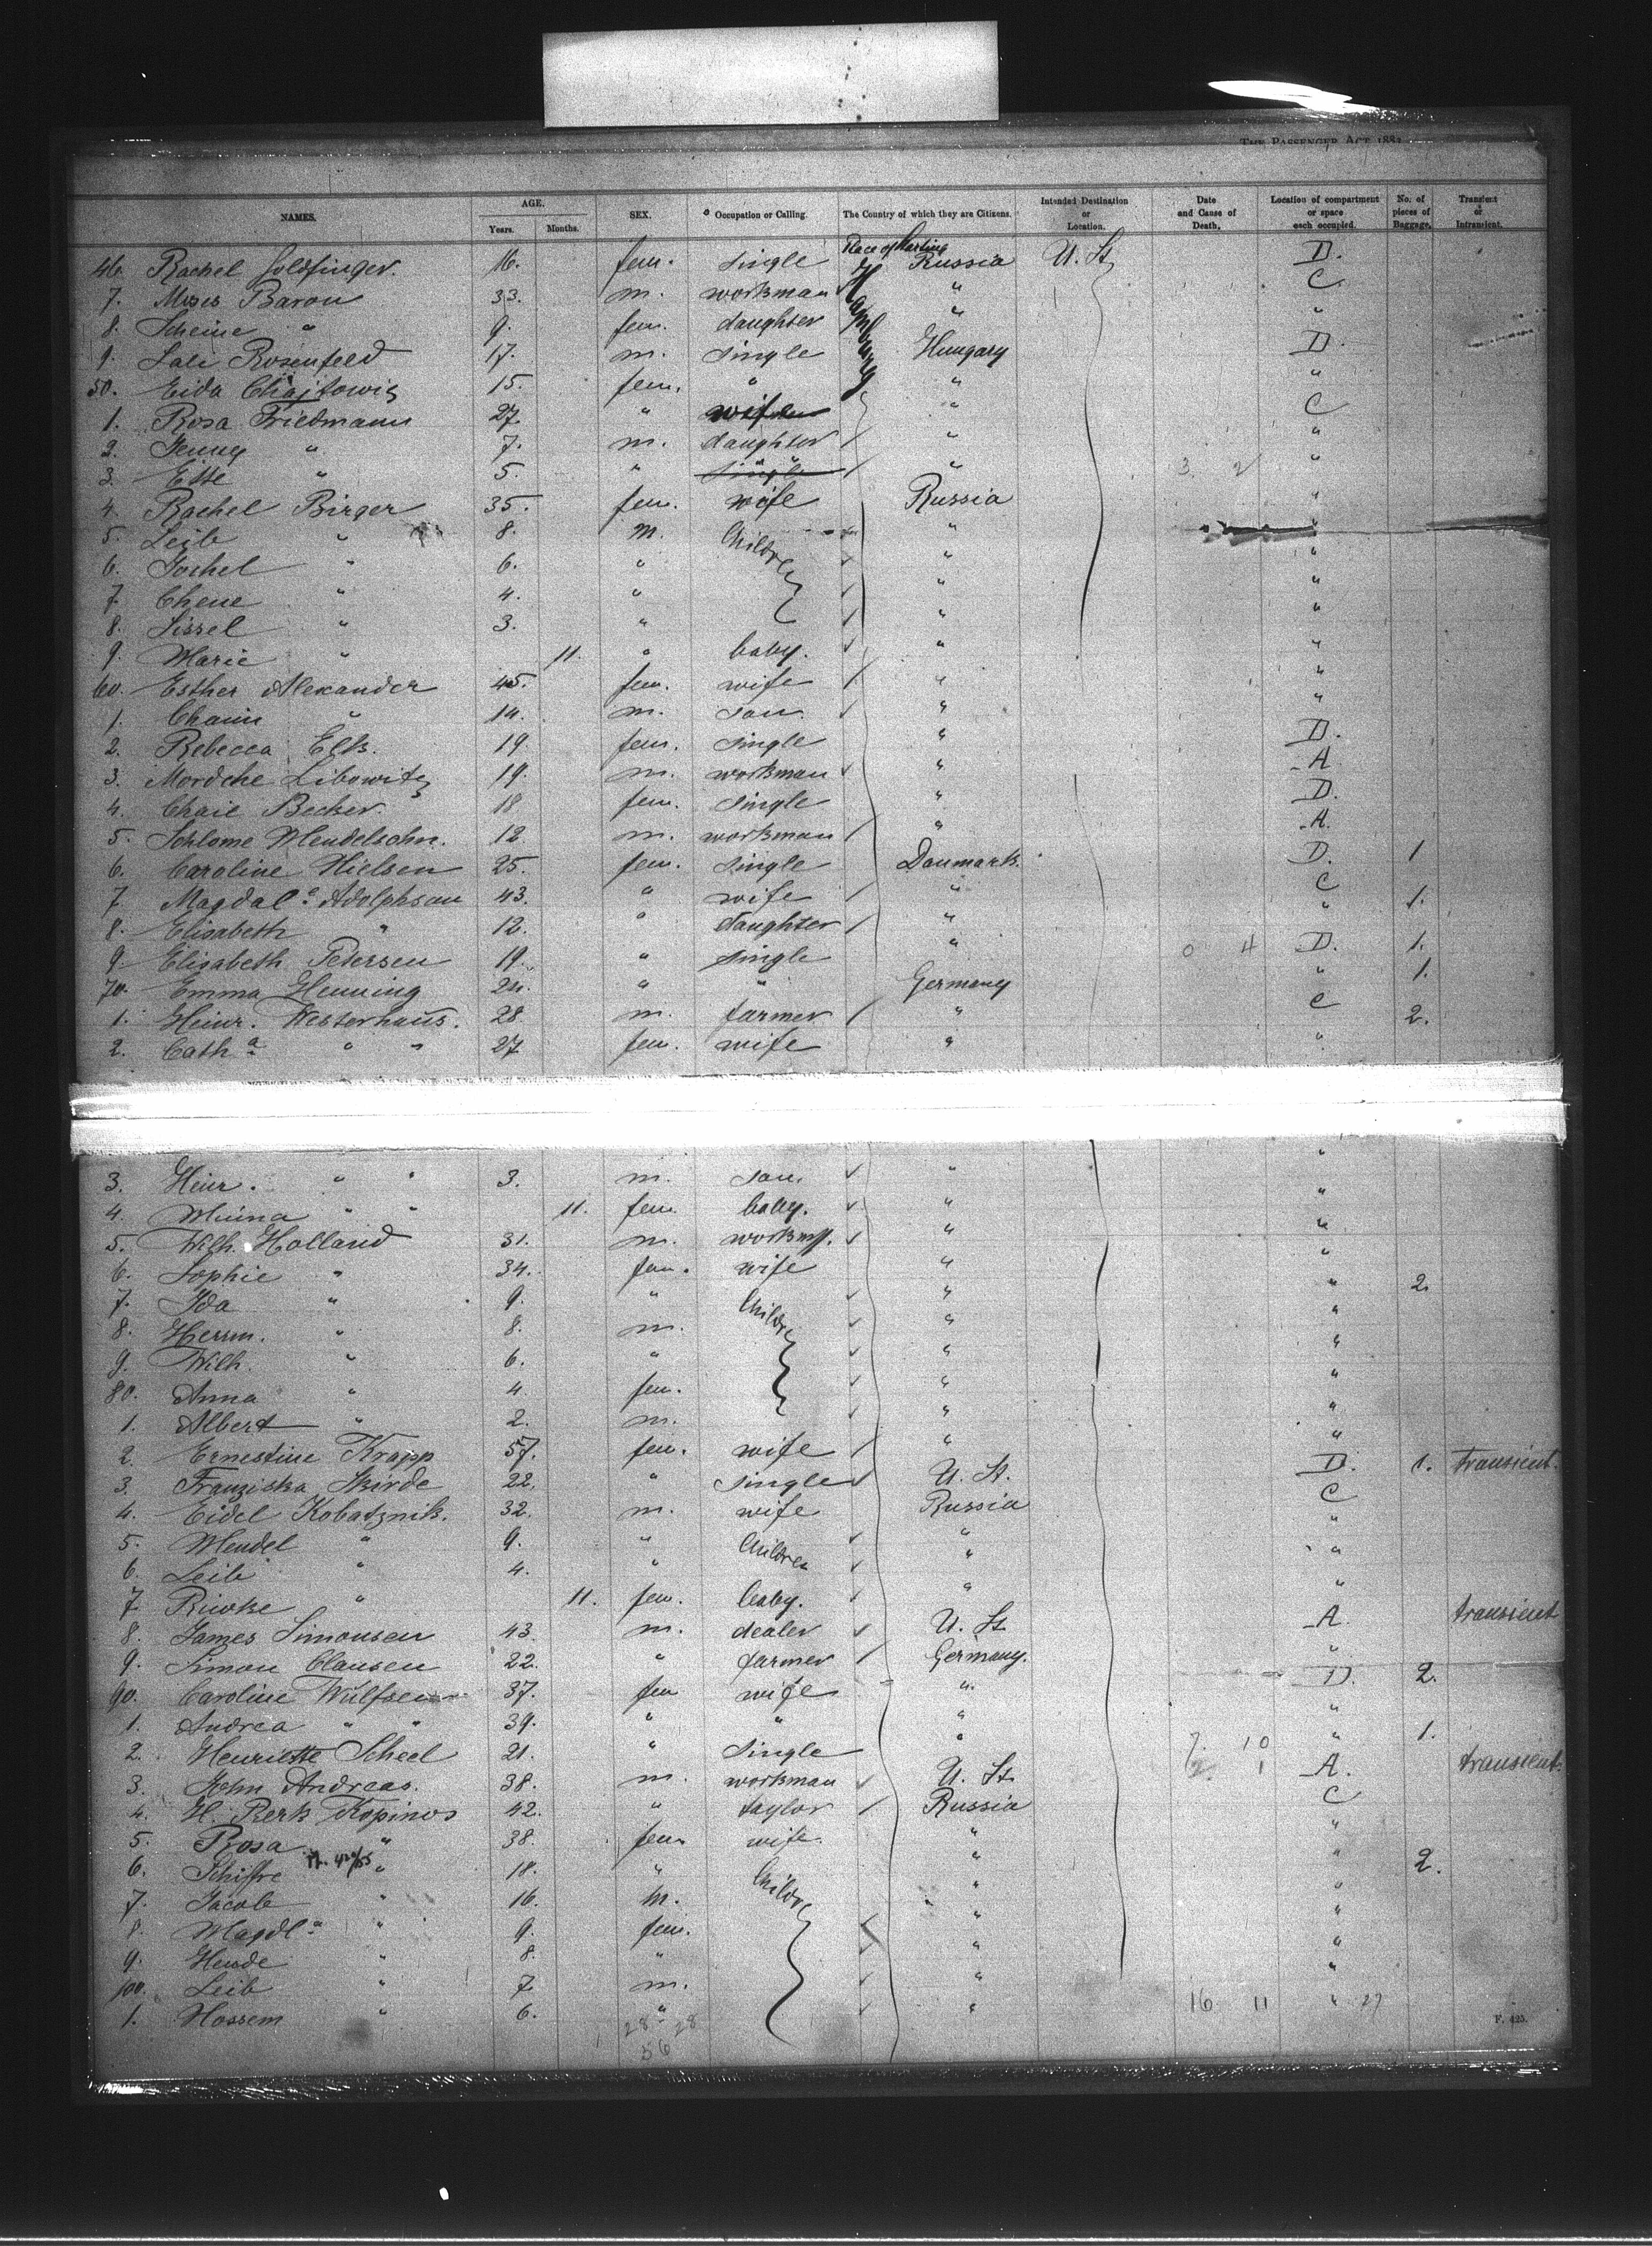 THE PASSENGER ACT 1882
NAMES. AGE. Years. Months. SEX. Occupation or Calling. The Country of which they are Citizens. Intended Destination or Location. Date and Cause of Death. Location of compartment or space each occupied. No. of pieces of Baggage. Transient or Intransient.
Place of Starting
Hamburg
46. Rachel Goldfinger. 16. fem. single Russia U. St. D.
7. Moses Baron 33. m. workman " C
8. Scheine " 9. fem. daughter " "
9. Sali Rosenfeld 17. m. single Hungary D.
50. Eida Chajtowiz 15. fem. " " "
1. Rosa Friedmann 27. " wife " C
2. Jenny " 7. m. daughter " "
3. Ette " 5. " single " 3 2 "
4. Rachel Birger 35. fem. wife Russia "
5. Leib " 8. m. Children " "
6. Joshel " 6. " " "
7. Chene " 4. " " "
8. Sissel " 3. " " "
9. Marie " 11. " baby. " "
60. Esther Alexander 45. fem. wife " "
1. Chaim " 14. m. son. " "
2. Rebecca Elk. 19. fem. single " D.
3. Mordche Libowitz 19. m. workman " A
4. Chaie Becker. 18 fem. single " D.
5. Schlome Mendelsohn. 12 m. workman " A.
6. Caroline Nielsen 25. fem. single Danmark. D. 1
7. Magdal.a Adolphsen 43. " wife " C
8. Elisabeth " 12. " daughter " " 1.
9. Elisabeth Petersen 19. " single " 0 4 D. 1.
70. Emma Henning 24. " " Germany " 1.
1. Heinr. Westerhaus. 28 m. farmer " C 2.
2. Cath.a " " 27 fem. wife " "
3. Heinr. " " 3. m. son. " "
4. Minna " " 11. fem. baby. " "
5. Wilh. Holland 31. m. workm. " "
6. Sophie " 34. fem. wife " "
7. Ida " 9. " Children " " 2.
8. Herrm. " 8. m. " "
9. Wilh. " 6. " " "
80. Anna " 4. fem. " "
1. Albert " 2. m. " "
2. Ernestine Krapp 57. fem. wife " "
3. Franziska Skirde 22. " single U. St. D. 1. transient.
4. Eidel Kobatznik. 32. m. wife Russia C
5. Mendel " 9. " Children " "
6. Leib " 4. " " "
7. Riwke " 11. fem. baby. " "
8. James Simonsen 43. m. dealer U. St. A. transient
9. Simon Clausen 22. " farmer Germany. "
90. Caroline Wulfsen 37. fem wife " D. 2.
1. Andrea " " 39. " " " "
2. Henriette Scheel 21. " single " 7. 10 " 1.
3. John Andreas. 38. m. workman U. St. 2 1 A. transient.
4. H. Berk Kopinos 42. " taylor Russia C
5. Rosa " 38. fem. wife. " "
6. Schifre " 18. " Children " " 2.
7. Jacob " 16. m. " "
8. Magdl.a " 9. fem. " "
9. Hende " 8. " " "
100. Leib " 7. m. " "
1. Nossem " 6. " " 16 11 " 27
28 28
56
F. 425.